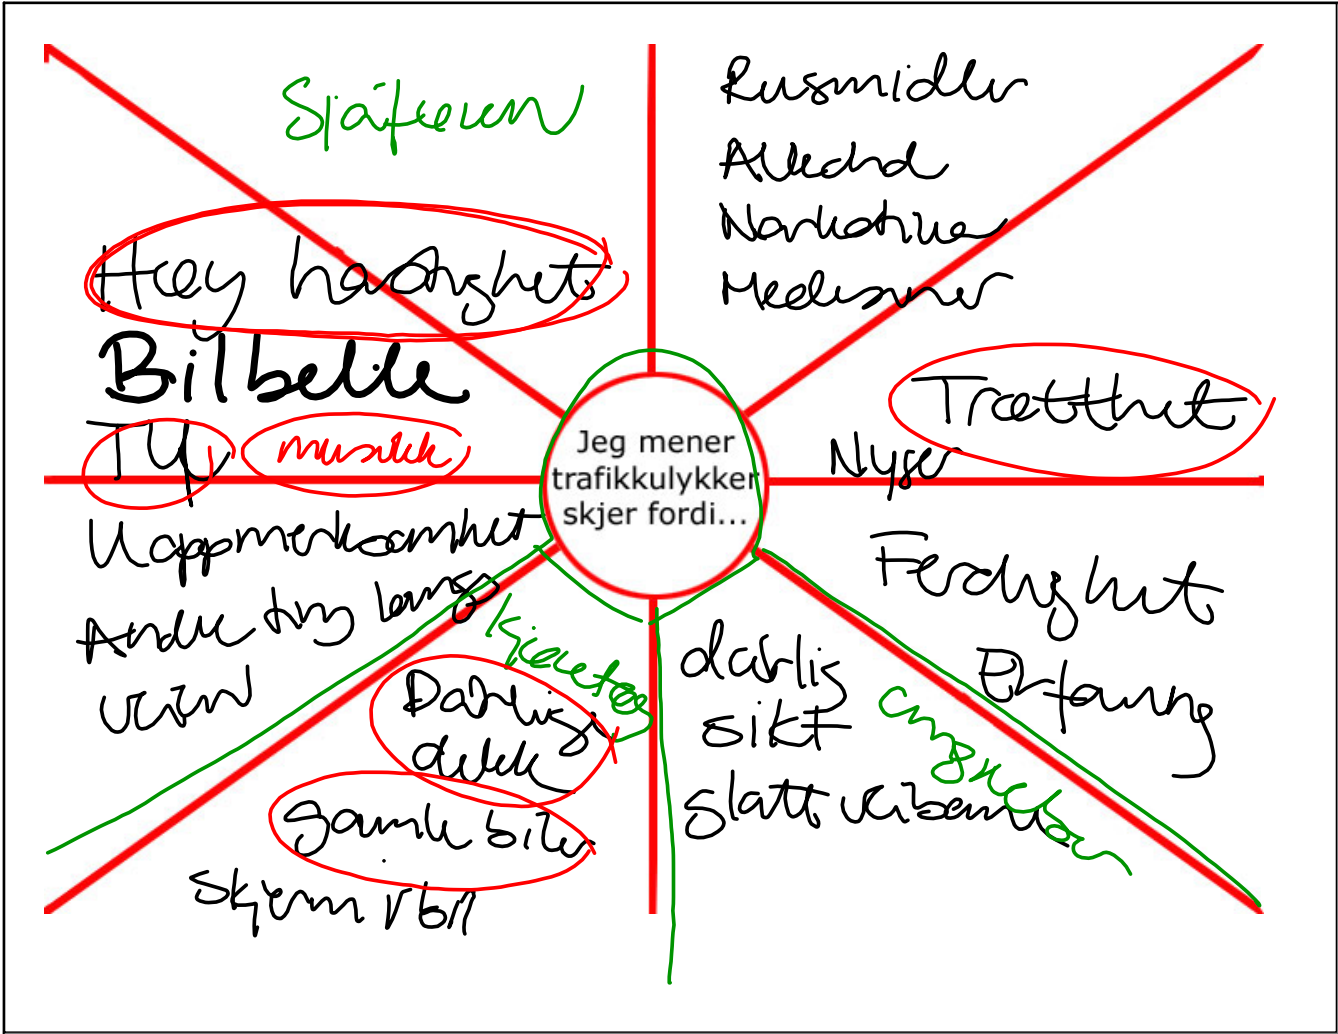 Sjåføren
Høy hastighet
Bilbelte
Tlf musikk
Uoppmerksomhet
Andre ting langs
veien
Rusmidler
Alkohol
Narkotika
Medisiner
Trøtthet
Nyser
Jeg mener
trafikkulykker
skjer fordi...
Ferdighet
Erfaring
kjøretøy
Dårlig
dekk
gamle biler
skjerm i bil
dårlig
sikt
glatt veibane